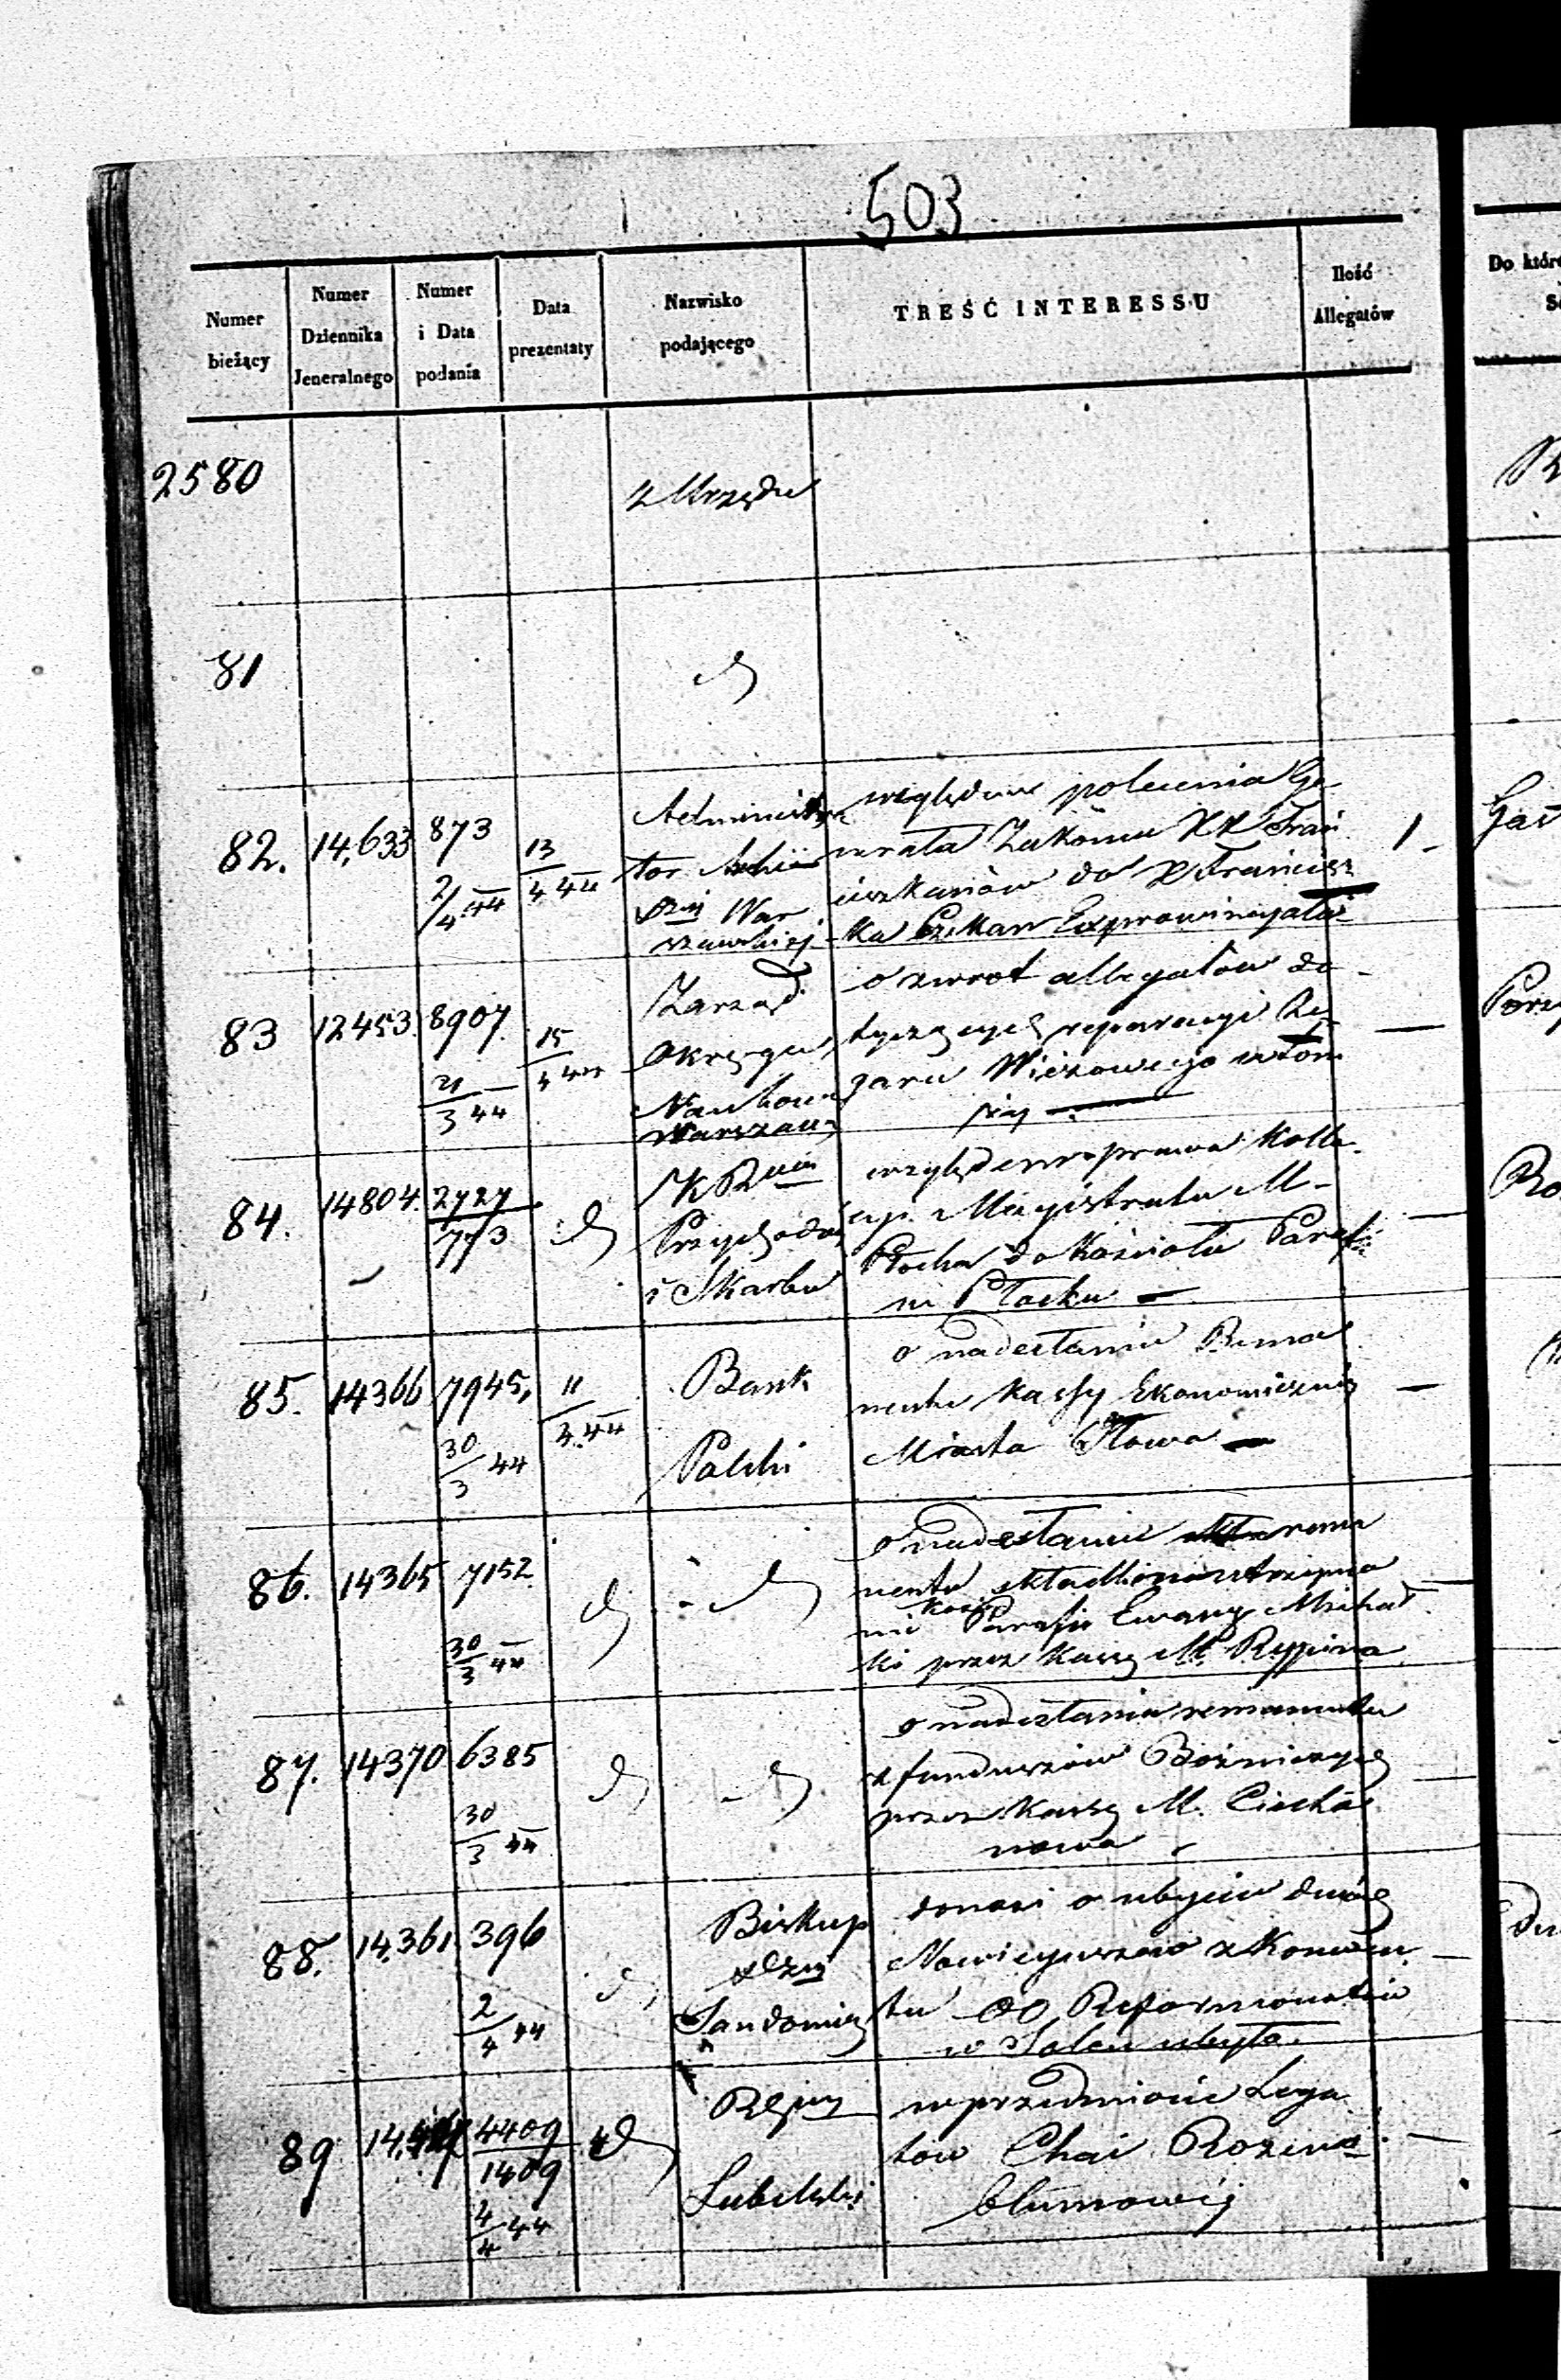 503
Numer bieżący
Numer Dziennika Jeneralnego
Numer i Data podania
Data prezentaty
Nazwisko podającego
TREŚĆ INTERESSU
Ilość Allegatów
Do któr
2580
z Urzędu
81
82. 14,633 873 2/4 44 13/4 44
Administra
tor
War
szawskiej
względem polecenia Ge
nerała Zakonu XX Fran
ciszkanów do X Francisz
ka Exprowincyała
1
83 12453. 8907. 21/3 44 15/4 44
Zarząd
Okręgu
Naukow
Warszaw
o zwrot allegatów do
tyczących reparacyi Ze
garu Wieżowego w Łom
ży
84. 14804. 2727/773
K R
Przychodów
i Skarbu
względem prawa Kolla
cyi Magistratu M
Płocka do Kościoła Paraf
w Płocku
85. 14366 7945, 30/3 44 11/3 44
Bank
Polski
o nadesłanie Rema
nentu Kassy Ekonomicznej
Miasta
86. 14365 7152. 30/3 44
o nadesłanie rema
nentu
Parafii Ewang Michał
ki przez Kassę M. Rypina
87. 14370 6385 30/3 44
o nadesłania remanentu
z funduszów Bożniczych
przez Kassę M. Ciecha
nowa
88. 14,361. 396 2/4 44
Biskup
Sandomier
donosi o ubyciu dwóch
Nowicyuszów z Konwen
tu OO Reformatów
w Solcu
89 4409/1409 4/4 44
Lubelski
w przedmiocie Lega
tów Chai Rozen
blumowéj